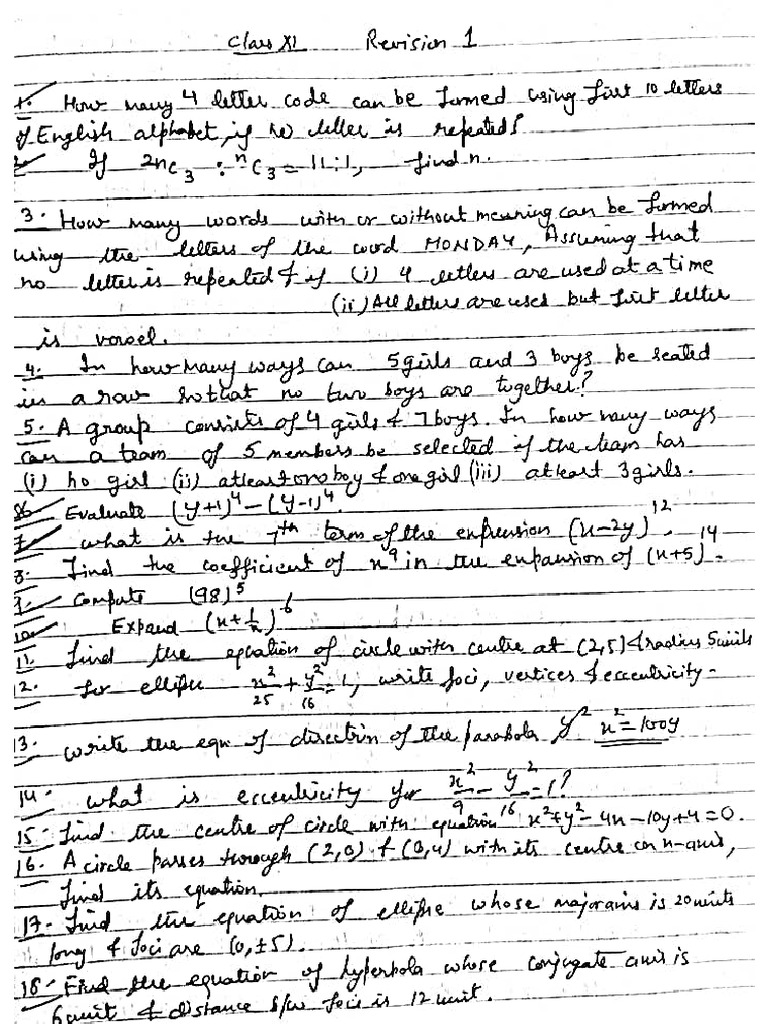 Class XI Revision 1
1. How many 4 letter code can be formed using first 10 letters
of English alphabet, if no letter is repeated?
2. If 2nC3 : nC3 = 11:1, find n.
3. How many words with or without meaning can be formed
using the letters of the word MONDAY, Assuming that
no letter is repeated & if (i) 4 letters are used at a time
(ii) All letters are used but first letter
is vowel.
4. In how many ways can 5 girls and 3 boys be seated
in a row so that no two boys are together?
5. A group consists of 4 girls & 7 boys. In how many ways
can a team of 5 members be selected if the team has
(i) no girl (ii) atleast one boy & one girl (iii) atleast 3 girls.
6. Evaluate (y+1)^4 - (y-1)^4.
7. what is the 7th term of the expression (x-2y)^12.
8. Find the coefficient of x^9 in the expansion of (x+5)^14.
9. Compute (98)^5
10. Expand (x+1/x)^6
11. Find the equation of circle with centre at (2,5) & radius 5 units
12. For ellipse x²/25 + y²/16 = 1, write foci, vertices & eccentricity.
13. write the eqn of direction of the parabola y² x² = 100y
14. what is eccentricity for x²/9 - y²/16 = 1?
15. Find the centre of circle with equation x²+y²-4x-10y+4=0.
16. A circle passes through (2,0) & (0,4) with its centre on x-axis,
find its equation.
17. Find the equation of ellipse whose major axis is 20 units
long & foci are (0,±5).
18. Find the equation of hyperbola whose conjugate axis is
6 unit & distance b/w foci is 12 unit.